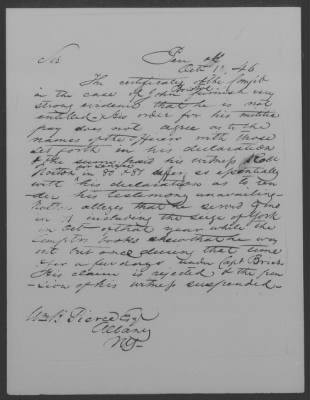 Sir
Pen off
Oct 1. 46
The certificate of the Compt
in the case of John furnish very
strong evidence that he is not
entitled. His order for his militia
pay does not agree as to the
names of the officers with those
set forth in his declaration
& the same
in 80 & 81 differ so essentially
with his declarations as to ren-
der his testimony unavailing
alleges that he served 9 mo
in 81 including the siege of York
in Oct of that year while the
Compt books show that he was
out but once during that time
& for a few days under Capt
His claim is rejected & the pen-
sion of his witness suspended.
Wm B Pierce Esq
Albany
N.Y.